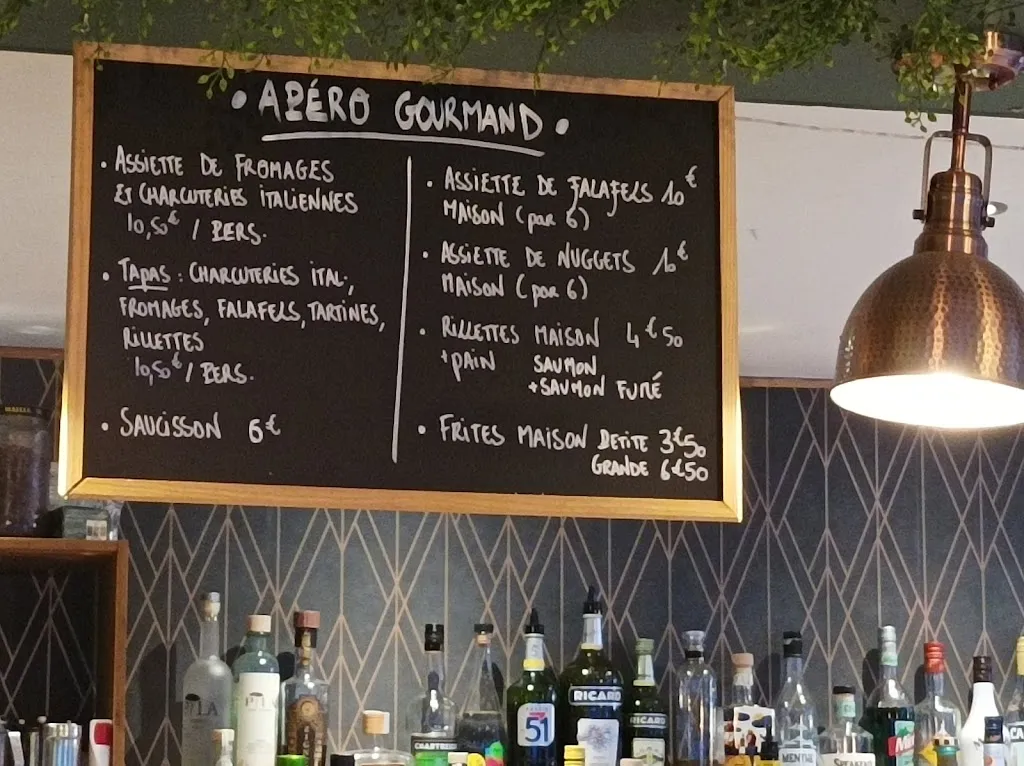 • APÉRO GOURMAND •
• ASSIETTE DE FROMAGES
ET CHARCUTERIES ITALIENNES
10,50€ / PERS.
• TAPAS : CHARCUTERIES ITAL.,
FROMAGES, FALAFELS, TARTINES,
RILLETTES
10,50€ / PERS.
• SAUCISSON 6€
• ASSIETTE DE FALAFELS 10€
MAISON (par 6)
• ASSIETTE DE NUGGETS 10€
MAISON (par 6)
• RILLETTES MAISON 4€50
+ PAIN SAUMON
+ SAUMON FUMÉ
• FRITES MAISON PETITE 3€50
GRANDE 6€50
51
RICARD
RICARD
MENTHE